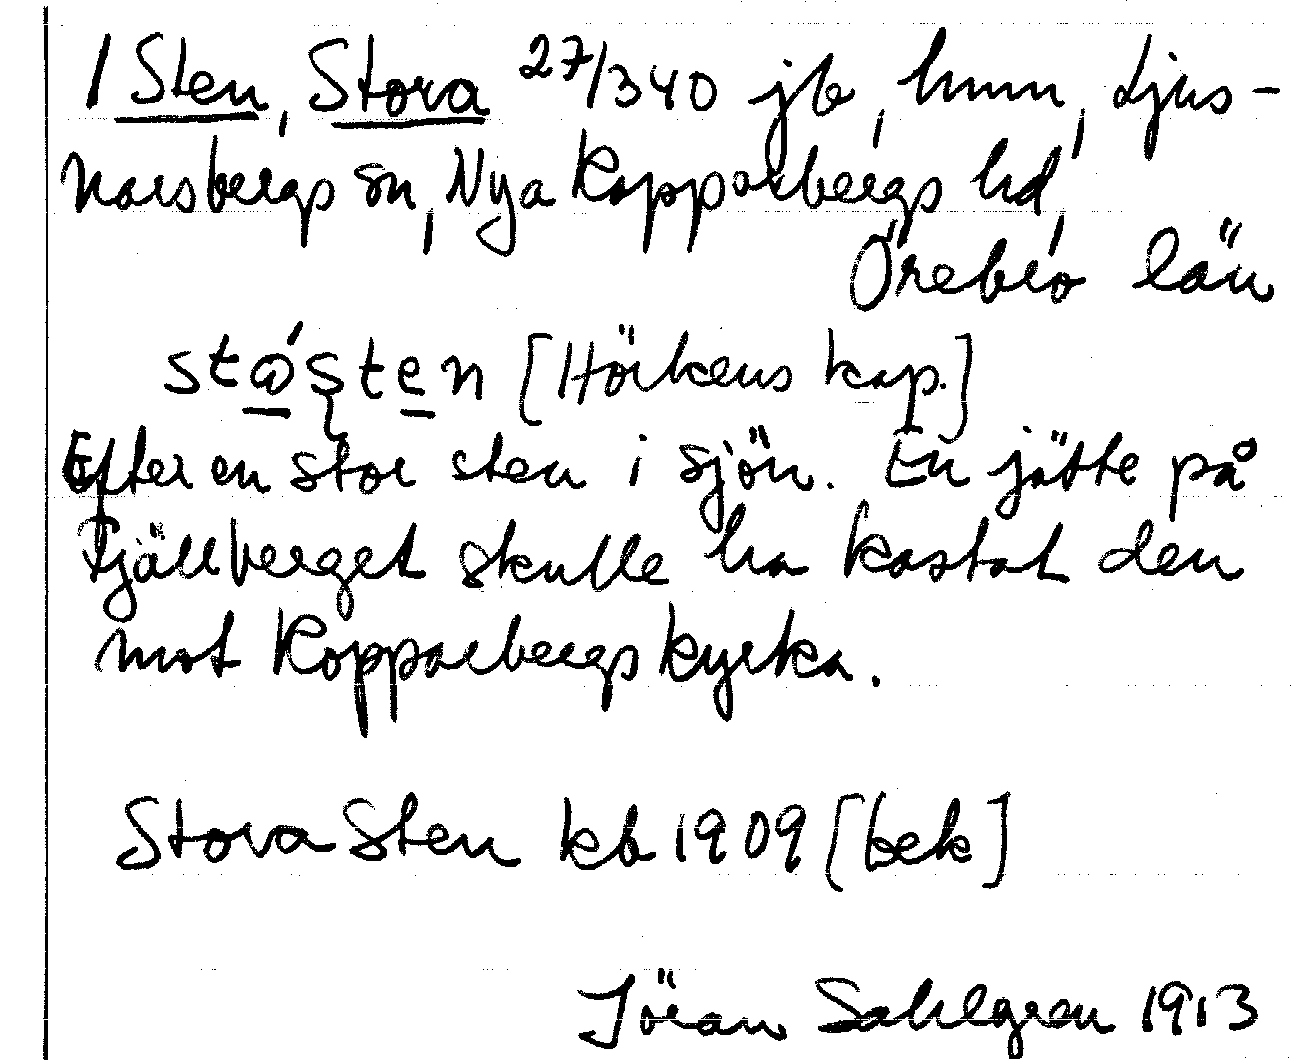 / Sten, Stora 27/340 jb, hmn, Ljus-
narsbergs sn, Nya Kopparbergs hd,
Örebro län
stǿsten [Hörkens kap.]
Efter en stor sten i sjön. En jätte på
Fjällberget skulle ha kastat den
mot Kopparbergs kyrka.
Stora Sten kb 1909 [bek]
Jöran Sahlgren 1913